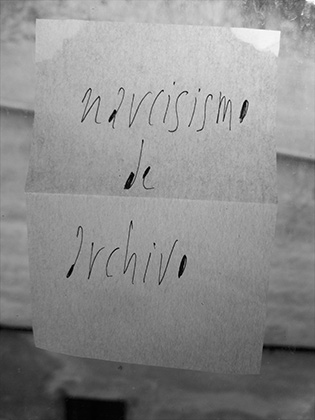 narcisismo
de
archivo